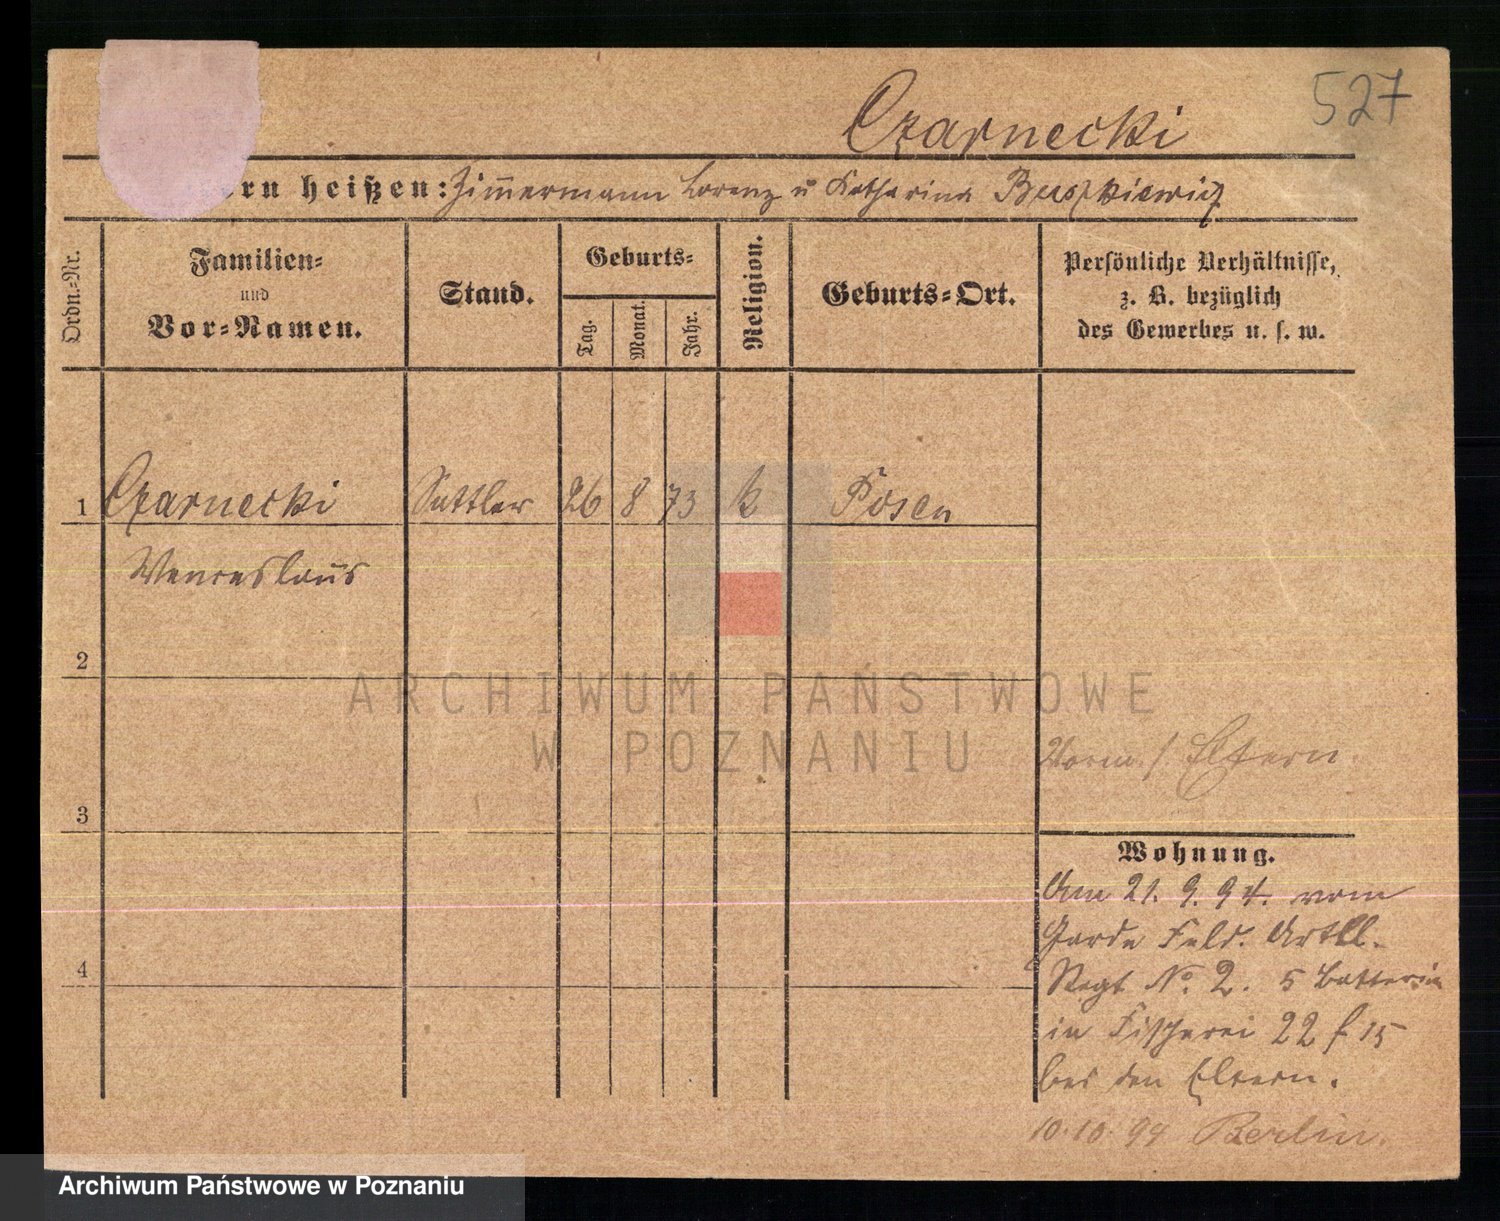 527
Czarnecki
ern heißen: Zim̄ermann Lorenz ū Katharina Buszkiewicz
Ordn.-Nr.
Familien-
und
Vor-Namen.
Stand.
Geburts-
Tag.
Monat.
Jahr.
Religion.
Geburts-Ort.
Persönliche Verhältnisse,
z. B. bezüglich
des Gewerbes u. s. w.
1 Czarnecki Sattler 26 8 73 k Posen
Wenceslaus
2
ARCHIWUM PAŃSTWOWE
W POZNANIU
Eltern.
3
Wohnung.
Am 21. 9. 94. vom
Garde Feld. Artll.
4
Regt No. 2. 5 Batterie
in Fischerei 22 f 15
bei den Eltern.
10.10.94 Berlin.
Archiwum Państwowe w Poznaniu